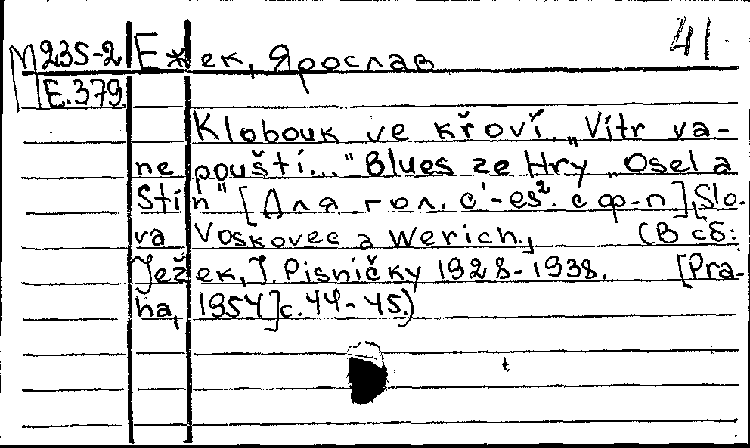 41
М 235-2 Ежек, Ярослав
Е.379
Klobouk ve křoví „Vítr va-
ne pouští..." Blues ze Hry „Osel a
Stín" [Для гол. c'-es². с ф-п], Slo-
va Voskovec a Werich.
(В сб:
Ježek, J. Pisničky 1928-1938. [Pra-
ha, 1954] с. 44-45.)